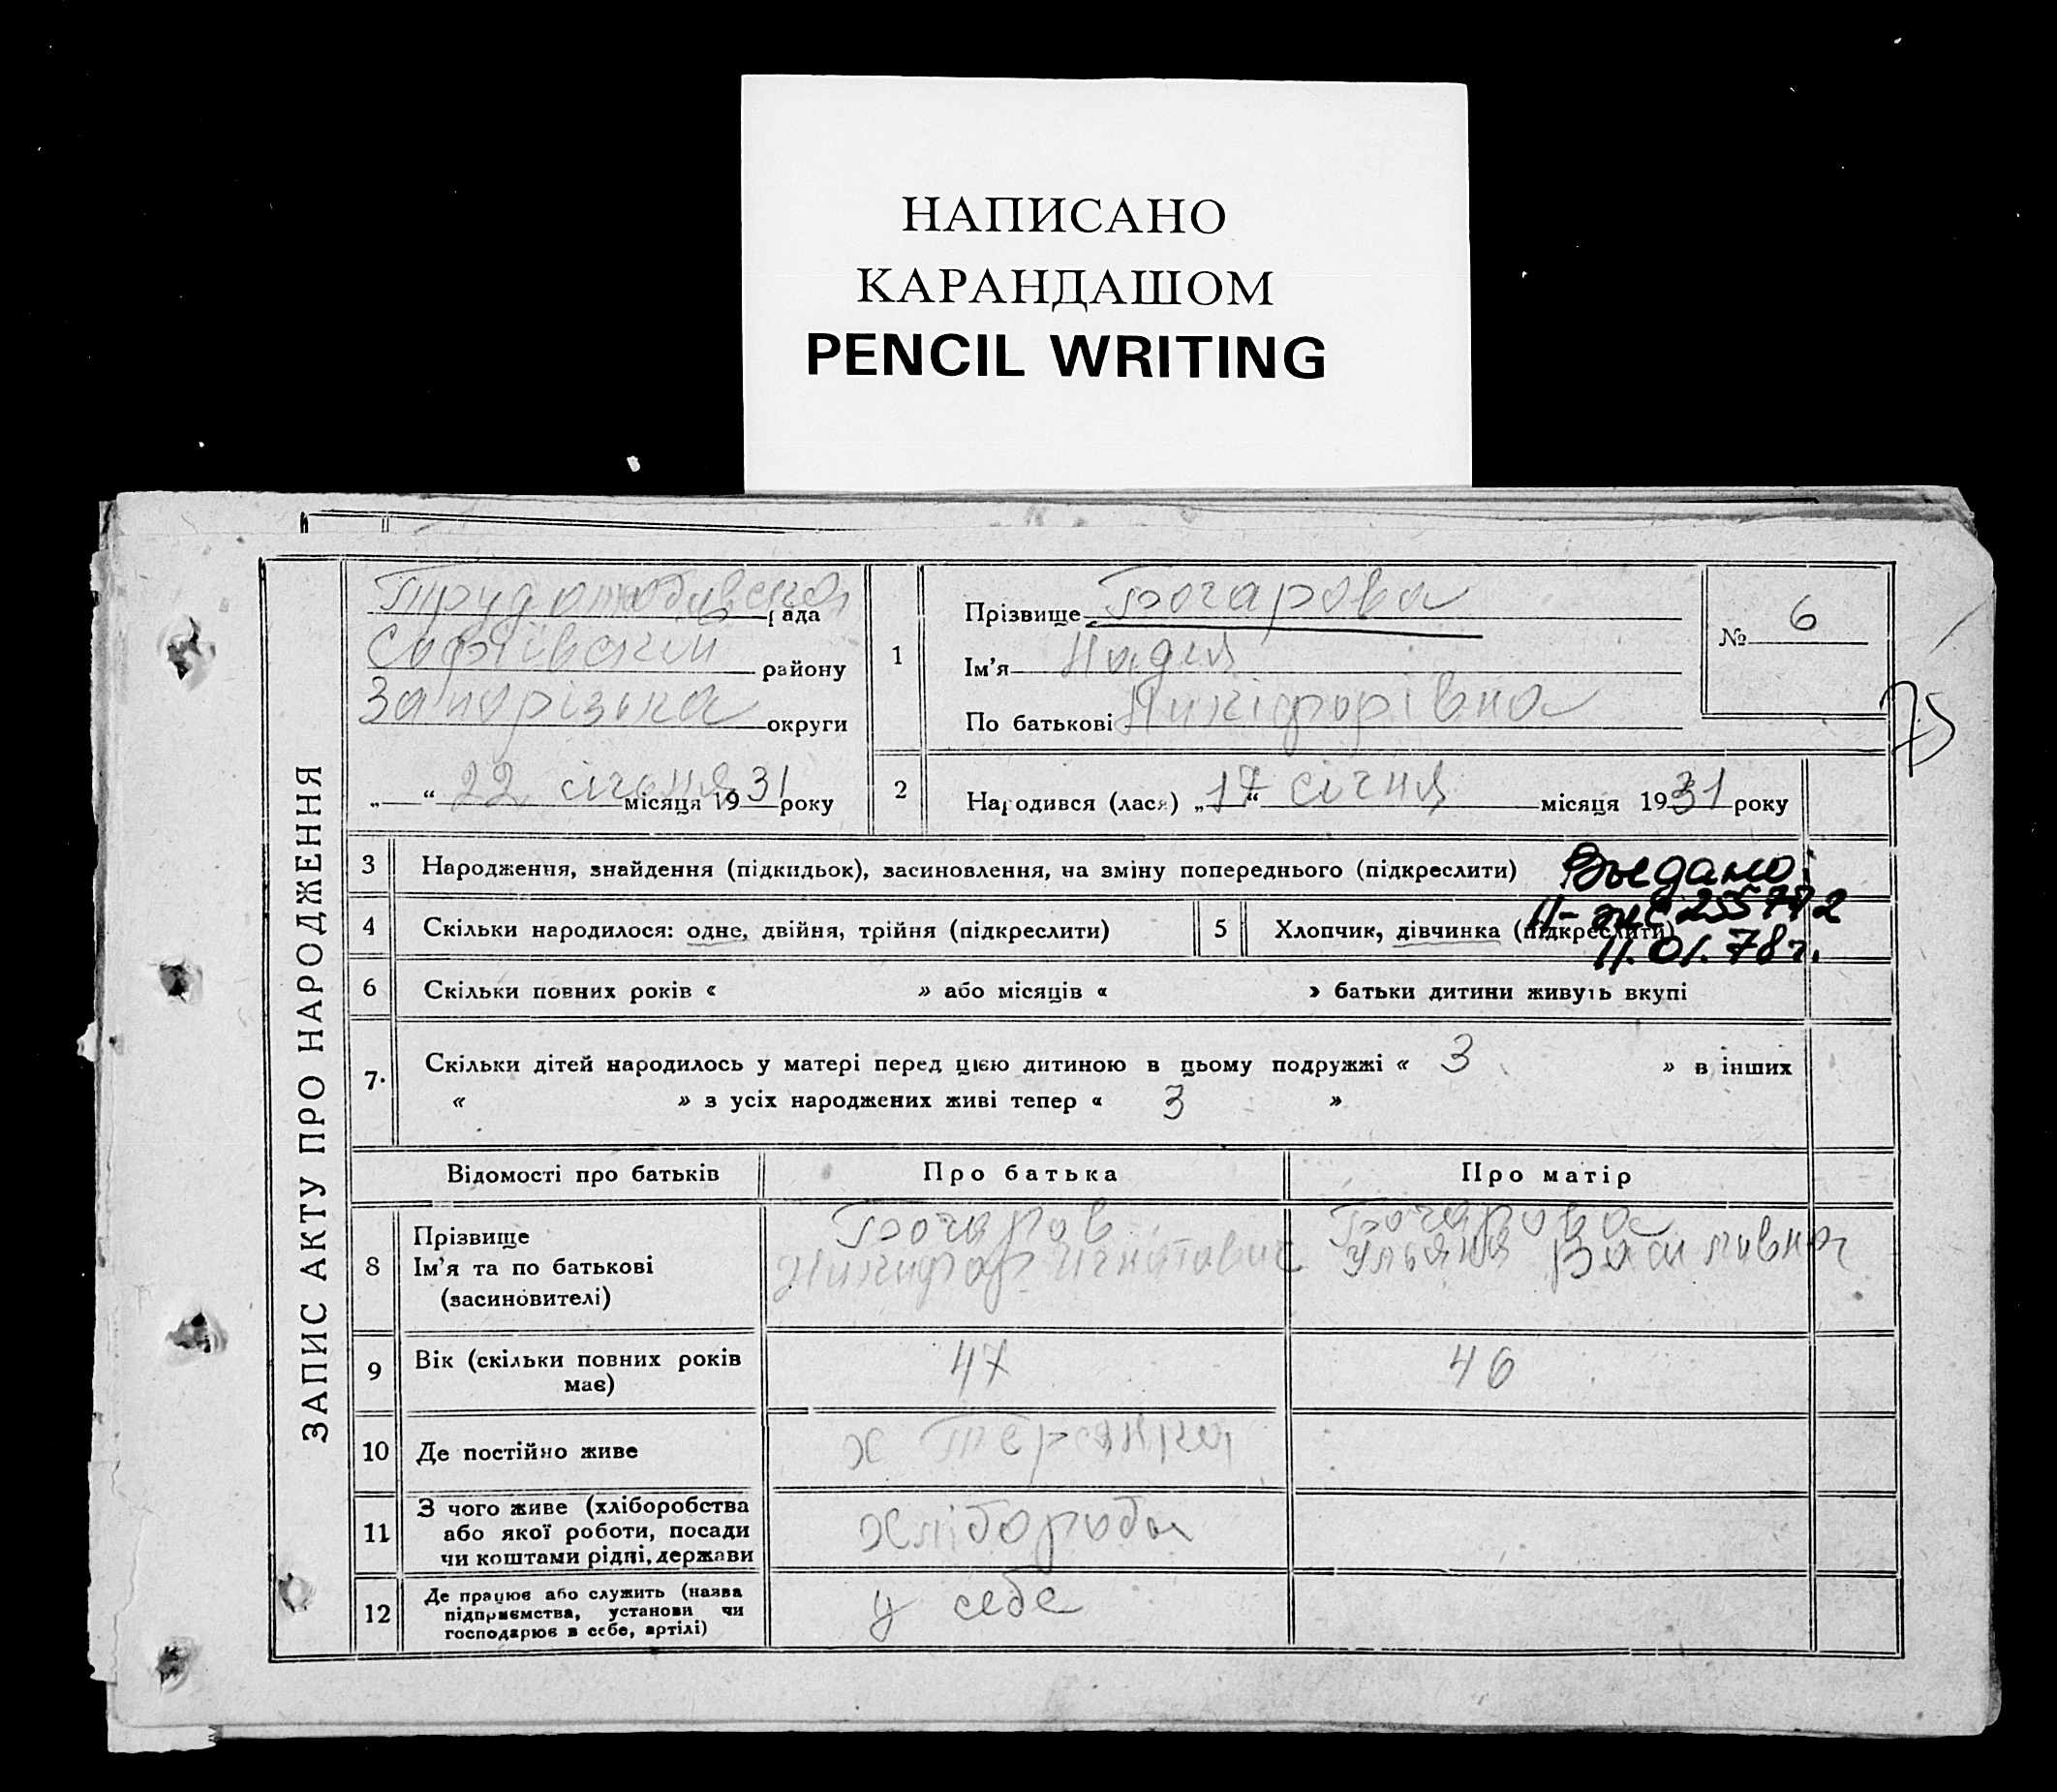 НАПИСАНО
КАРАНДАШОМ
PENCIL WRITING
ЗАПИС АКТУ ПРО НАРОДЖЕННЯ
рада
Софіївський району
Запорізька округи
„ “ 22 січня місяця 1931 року
1
Прізвище Бочарова
Ім'я Надія
По батькові Никіфорівна
№ 6
75
2
Народився (лася) „17“ січня місяця 1931 року
3 Народження, знайдення (підкидьок), засиновлення, на зміну попереднього (підкреслити)
4 Скільки народилося: одне, двійня, трійня (підкреслити)
5 Хлопчик, дівчинка (підкреслити)
11.01.78г.
6 Скільки повних років « » або місяців « » батьки дитини живуть вкупі
7. Скільки дітей народилось у матері перед цією дитиною в цьому подружжі « 3 » в інших
« » з усіх народжених живі тепер « 3 »
Відомості про батьків Про батька Про матір
8 Прізвище
Ім'я та по батькові
(засиновителі)
Бочаров
Никифор Игнатович
Бочарова
Ульяна Василивна
9 Вік (скільки повних років
має)
47
46
10 Де постійно живе
х Терсянка
11 З чого живе (хліборобства
або якої роботи, посади
чи коштами рідні, держави
хлібороби
12 Де працює або служить (назва
підприємства, установи чи
господарює в себе, артілі)
у себе